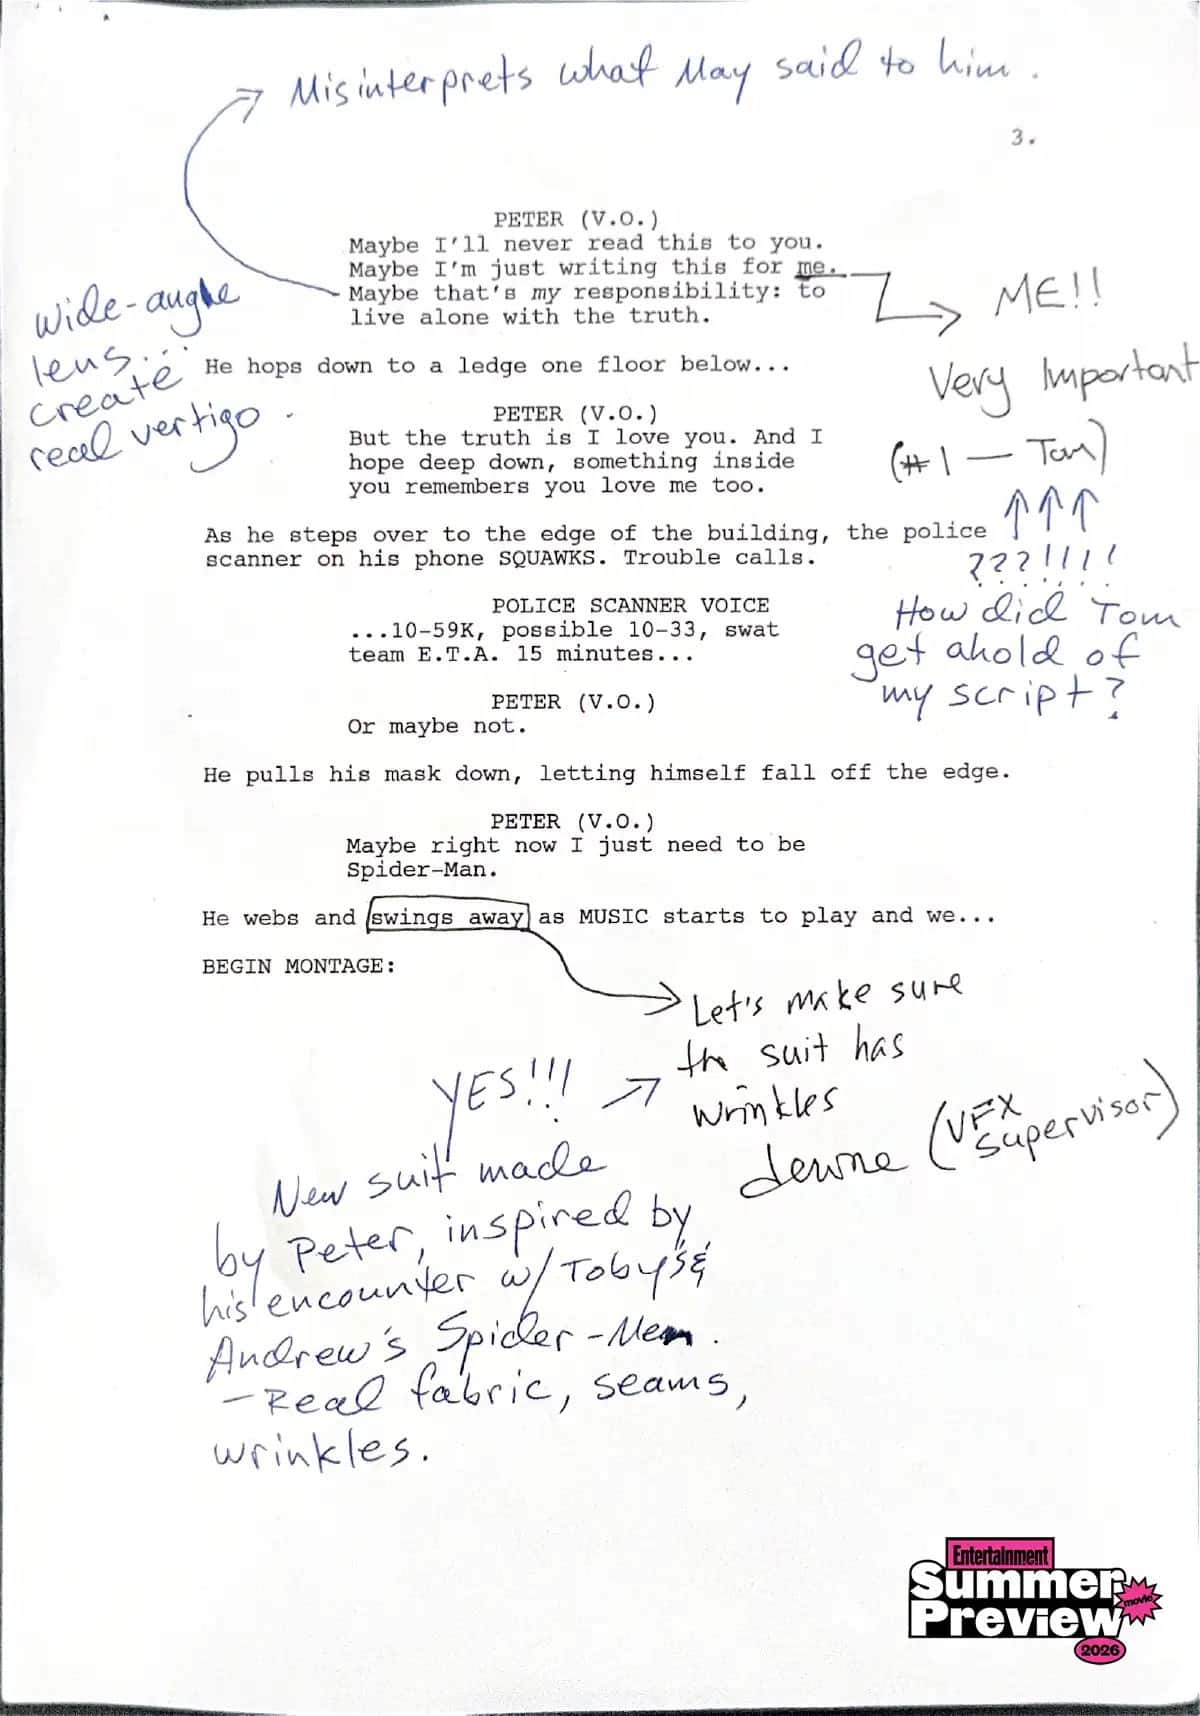 Misinterprets what May said to him.
3.
PETER (V.O.)
Maybe I'll never read this to you.
Maybe I'm just writing this for me.
Maybe that's my responsibility: to
live alone with the truth.
ME!!
Very Important
(#1 — Tom)
wide-angle
lens...
create
real vertigo.
He hops down to a ledge one floor below...
PETER (V.O.)
But the truth is I love you. And I
hope deep down, something inside
you remembers you love me too.
As he steps over to the edge of the building, the police
scanner on his phone SQUAWKS. Trouble calls.
???!!!!
How did Tom
get ahold of
my script?
POLICE SCANNER VOICE
...10-59K, possible 10-33, swat
team E.T.A. 15 minutes...
PETER (V.O.)
Or maybe not.
He pulls his mask down, letting himself fall off the edge.
PETER (V.O.)
Maybe right now I just need to be
Spider-Man.
He webs and swings away as MUSIC starts to play and we...
BEGIN MONTAGE:
Let's make sure
the suit has
wrinkles
(VFX
supervisor)
YES!!!
New suit made
by Peter, inspired by
his encounter w/ Toby's &
Andrew's Spider-Men.
- Real fabric, seams,
wrinkles.
Entertainment
Summer
movie
Preview
2026